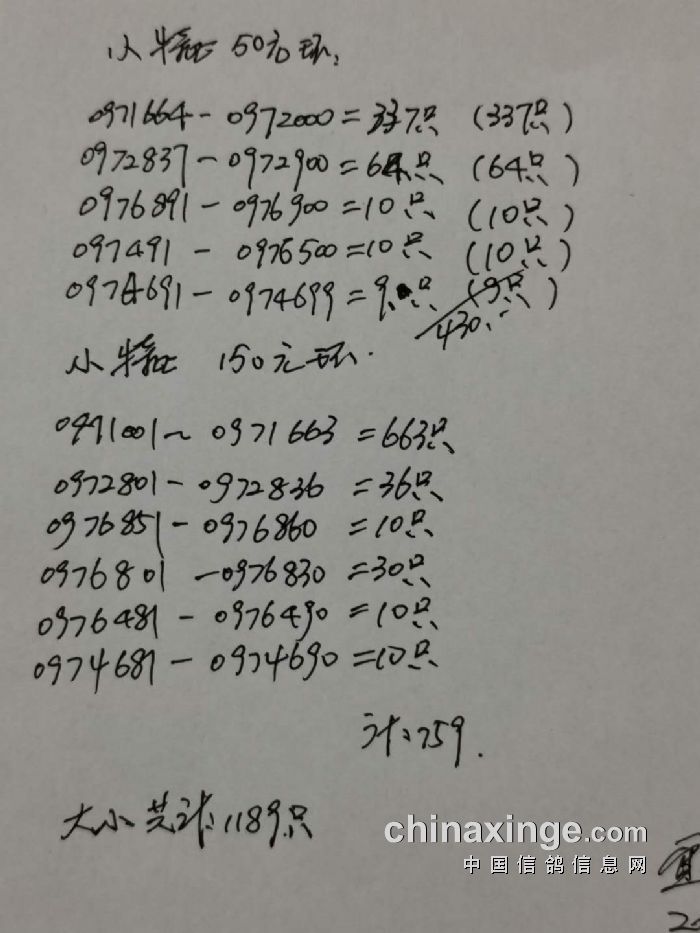 小特比 50元环:
0971664 - 0972000 = 337只 (337只)
0972837 - 0972900 = 64只 (64只)
0976891 - 0976900 = 10只 (10只)
097491 - 0976500 = 10只 (10只)
0974691 - 0974699 = 9只 (9只)
430.-
小特比 150元环.
0971001~ 0971663 = 663只
0972801 - 0972836 = 36只
0976851 - 0976860 = 10只
0976801 - 0976830 = 30只
0976481 - 0976490 = 10只
0974681 - 0974690 = 10只
计:759.
大小共计:1189只
chinaxinge.com
中国信鸽信息网